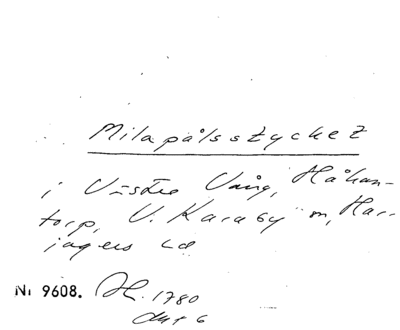 Milapålsstycket
i Västra Vång, Håkan-
torp, V. Karaby sn, Har-
jagers hd
Nr 9608. Ah. 1780
akt 6